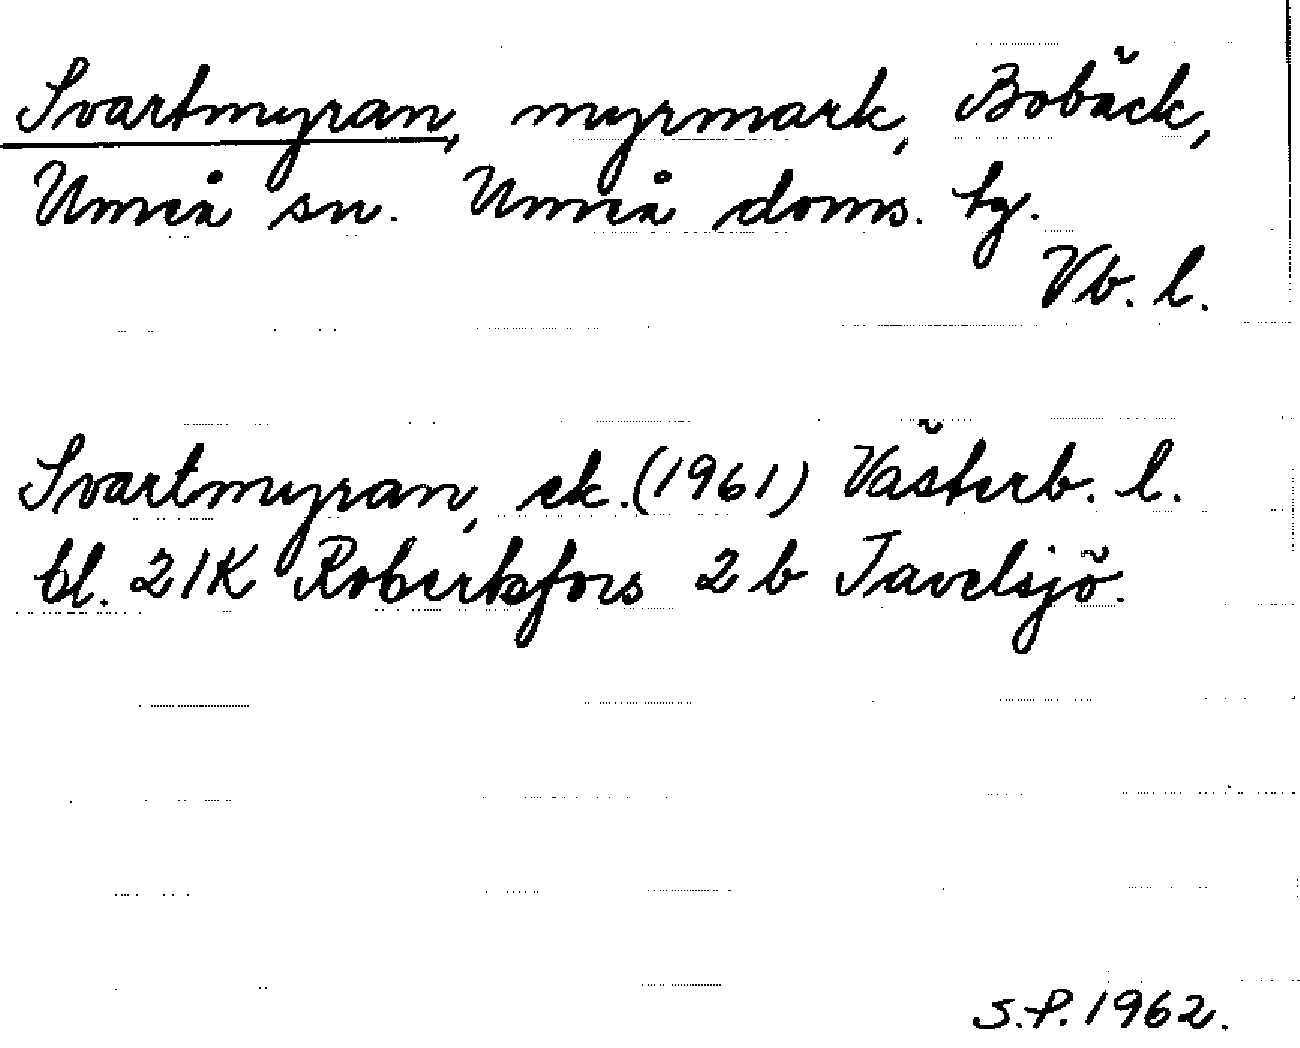 Svartmyran, myrmark, Bobäck,
Umeå sn. Umeå doms. tg.
Vb. l.
Svartmyran, ek. (1961) Västerb. l.
bl. 21K Robertsfors 2 b Tavelsjö.
S.P. 1962.